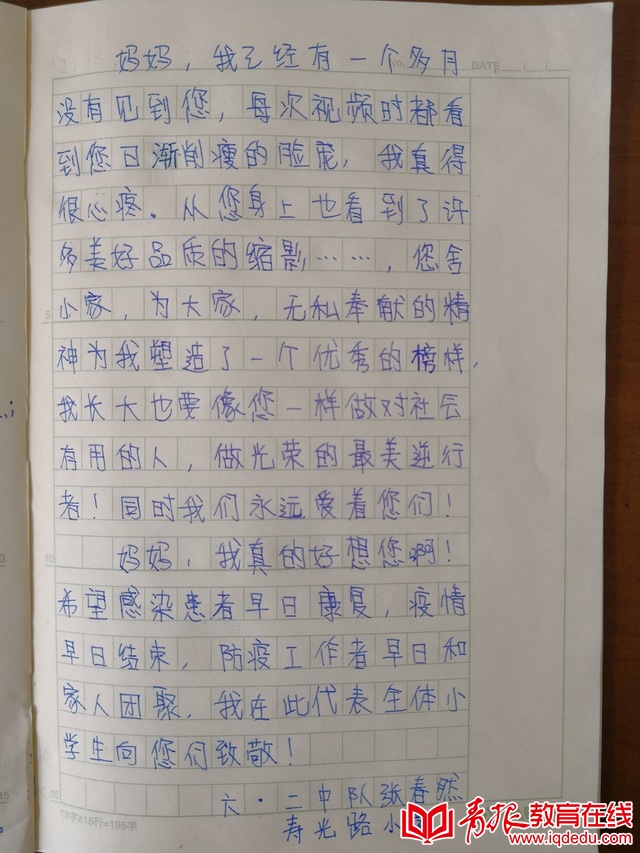 妈妈，我已经有一个多月
No.
DATE / /
没有见到您，每次视频时都看
到您日渐削瘦的脸庞，我真得
很心疼。从您身上也看到了许
多美好品质的缩影……，您舍
5 小家，为大家，无私奉献的精
神为我塑造了一个优秀的榜样，
我长大也要像您一样做对社会
有用的人，做光荣的最美逆行
者！同时我们永远爱着您们！
10 妈妈，我真的好想您啊！
希望感染患者早日康复，疫情
早日结束，防疫工作者早日和
家人团聚，我在此代表全体小
学生向您们致敬！
15 六·二中队张春然
13字X15行=195字
寿光路小
青报教育在线
www.iqdedu.com